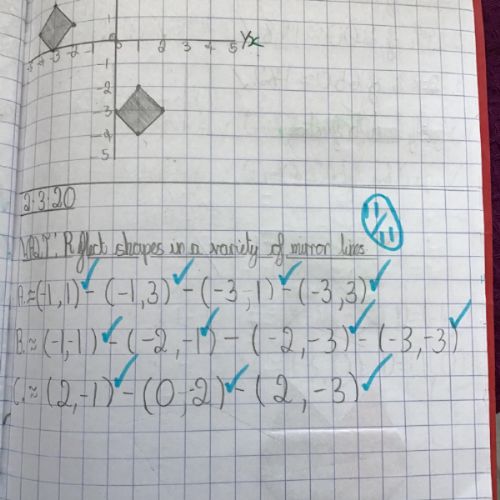 1
-5 -4 -3 -2 0 1 2 3 4 5 x
-1
-2
-3
-4
5
2.3.20
WALT: Reflect shapes in a variety of mirror lines
11/11
A.≈(-1,1) - (-1,3) - (-3,1) - (-3,3)
B.≈(-1,-1) - (-2,-1) - (-2,-3) - (-3,-3)
C.≈(2,-1) - (0,-2) - (2,-3)